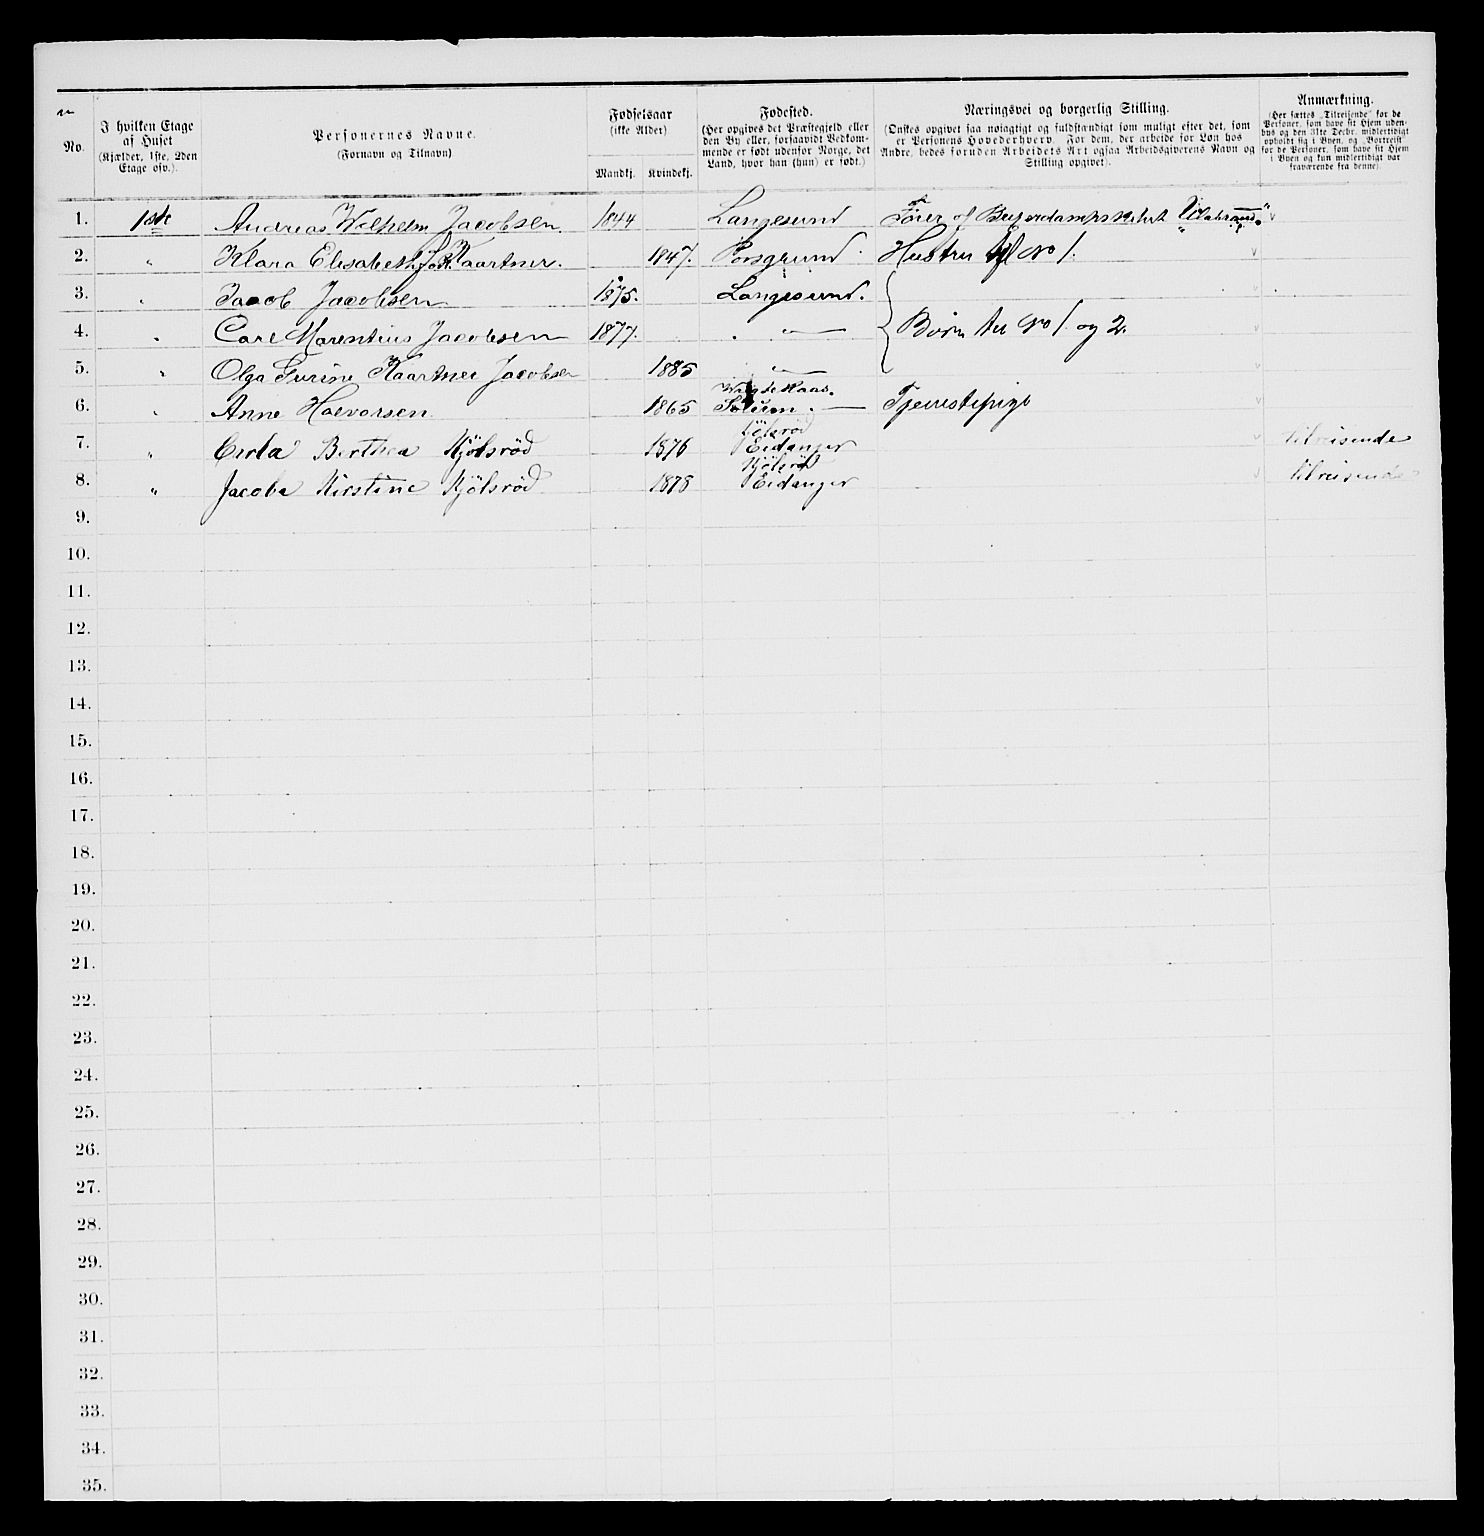 No.
I hvilken Etage
af Huset
(Kjælder, 1ste, 2den
Etage osv.).
Personernes Navne.
(Fornavn og Tilnavn)
Fødselsaar
(ikke Alder)
Mandkj. Kvindekj.
Fødested.
(Her opgives det Præstegjeld eller
den By eller, forsaavidt Vedkom-
mende er født udenfor Norge, det
Land, hvor han (hun) er født.)
Næringsvei og borgerlig Stilling.
(Ønskes opgivet saa nøiagtigt og fuldstændigt som muligt efter det, som
er Personens Hovederhverv. For dem, der arbeide for Løn hos
Andre, bedes foruden Arbeidets Art ogsaa Arbeidsgiverens Navn og
Stilling opgivet).
Anmærkning.
(Her sættes „Tilreisende" for de
Personer, som have sit Hjem uden-
bys og den 31te Decbr. midlertidigt
opholdt sig i Byen, og „Bortreist"
for de Personer, som have sit Hjem
i Byen og kun midlertidigt var
fraværende fra denne).
1. 1ste Andreas Wilhelm Jacobsen. 1844 Langesund Fører af
2. " Klara Elisabeth Kaartner. 1847. Porsgrund. Hustru til No 1.
3. " Jacob Jacobsen 1875. Langesund.
4. " Carl Marentius Jacobsen 1877. — " — Børn til No 1. og 2.
5. " Olga Turine Kaartner Jacobsen 1885 — " —
6. " Anne Halvorsen 1865 Solum. — Tjenestepige
7. " Berthea Kjölsröd 1876 Eidanger tilreisende
8. " Jacoba Kirstine Kjölsröd 1878 Kjölsröd Eidanger tilreisende
9.
10.
11.
12.
13.
14.
15.
16.
17.
18.
19.
20.
21.
22.
23.
24.
25.
26.
27.
28.
29.
30.
31.
32.
33.
34.
35.